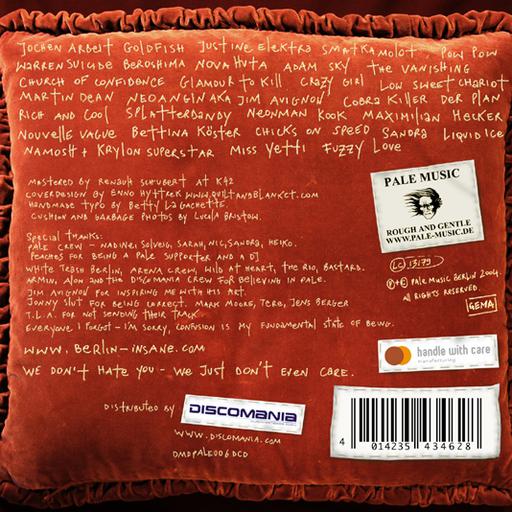 JOCHEN ARBEIT GOLDFISH JUSTINE ELEKTRA SMATKAMOLOT. POW POW
WARREN SUICIDE BEROSHIMA NOVA HUTA ADAM SKY THE VANISHING
CHURCH OF CONFIDENCE GLAMOUR TO KILL CRAZY GIRL LOW SWEET CHARIOT
MARTIN DEAN NEOANGIN AKA JIM AVIGNON COBRA KILLER DER PLAN
RICH AND COOL SPLATTERDANDY NEONMAN KOOK MAXIMILIAN HECKER
NOUVELLE VAGUE BETTINA KÖSTER CHICKS ON SPEED SANDRA LIQUID ICE
NAMOSH + KRYLON SUPERSTAR MISS YETTI FUZZY LOVE
MASTERED BY RENAULT SCHUBERT AT K42
COVERDESIGN BY ENNO WYHTREK WWW.QUILTANDBLANKET.COM
HANDMADE TYPO BY BETTY LA GACHETTE.
CUSHION AND GARBAGE PHOTOS BY LUCIA BRISTOW.
SPECIAL THANKS:
PALE CREW - NADINE, SOLVEIG, SARAH, NIC, SANDRA, HEIKO.
PEACHES FOR BEING A PALE SUPPORTER AND A DJ
WHITE TRASH BERLIN, ARENA CREW, WILD AT HEART, THE RIO, BASTARD.
ARMIN, ALON AND THE DISCOMANIA CREW FOR BELIEVING IN PALE.
JIM AVIGNON FOR INSPIRING ME WITH HIS ART.
JONNY SLUT FOR BEING CORRECT. MARK MOORE, TERO, JENS BERGER
T.L.A. FOR NOT SENDING THEIR TRACK
EVERYONE I FORGOT - I'M SORRY, CONFUSION IS MY FUNDAMENTAL STATE OF BEING.
WWW.BERLIN-INSANE.COM
WE DON'T HATE YOU - WE JUST DON'T EVEN CARE.
DISTRIBUTED BY DISCOMANIA
WWW.DISCOMANIA.COM
DMDPALE006DCD
PALE MUSIC
ROUGH AND GENTLE
WWW.PALE-MUSIC.DE
LC 13179
℗+© PALE MUSIC BERLIN 2004.
ALL RIGHTS RESERVED.
GEMA
handle with care
manufacturing
4 014235 434628